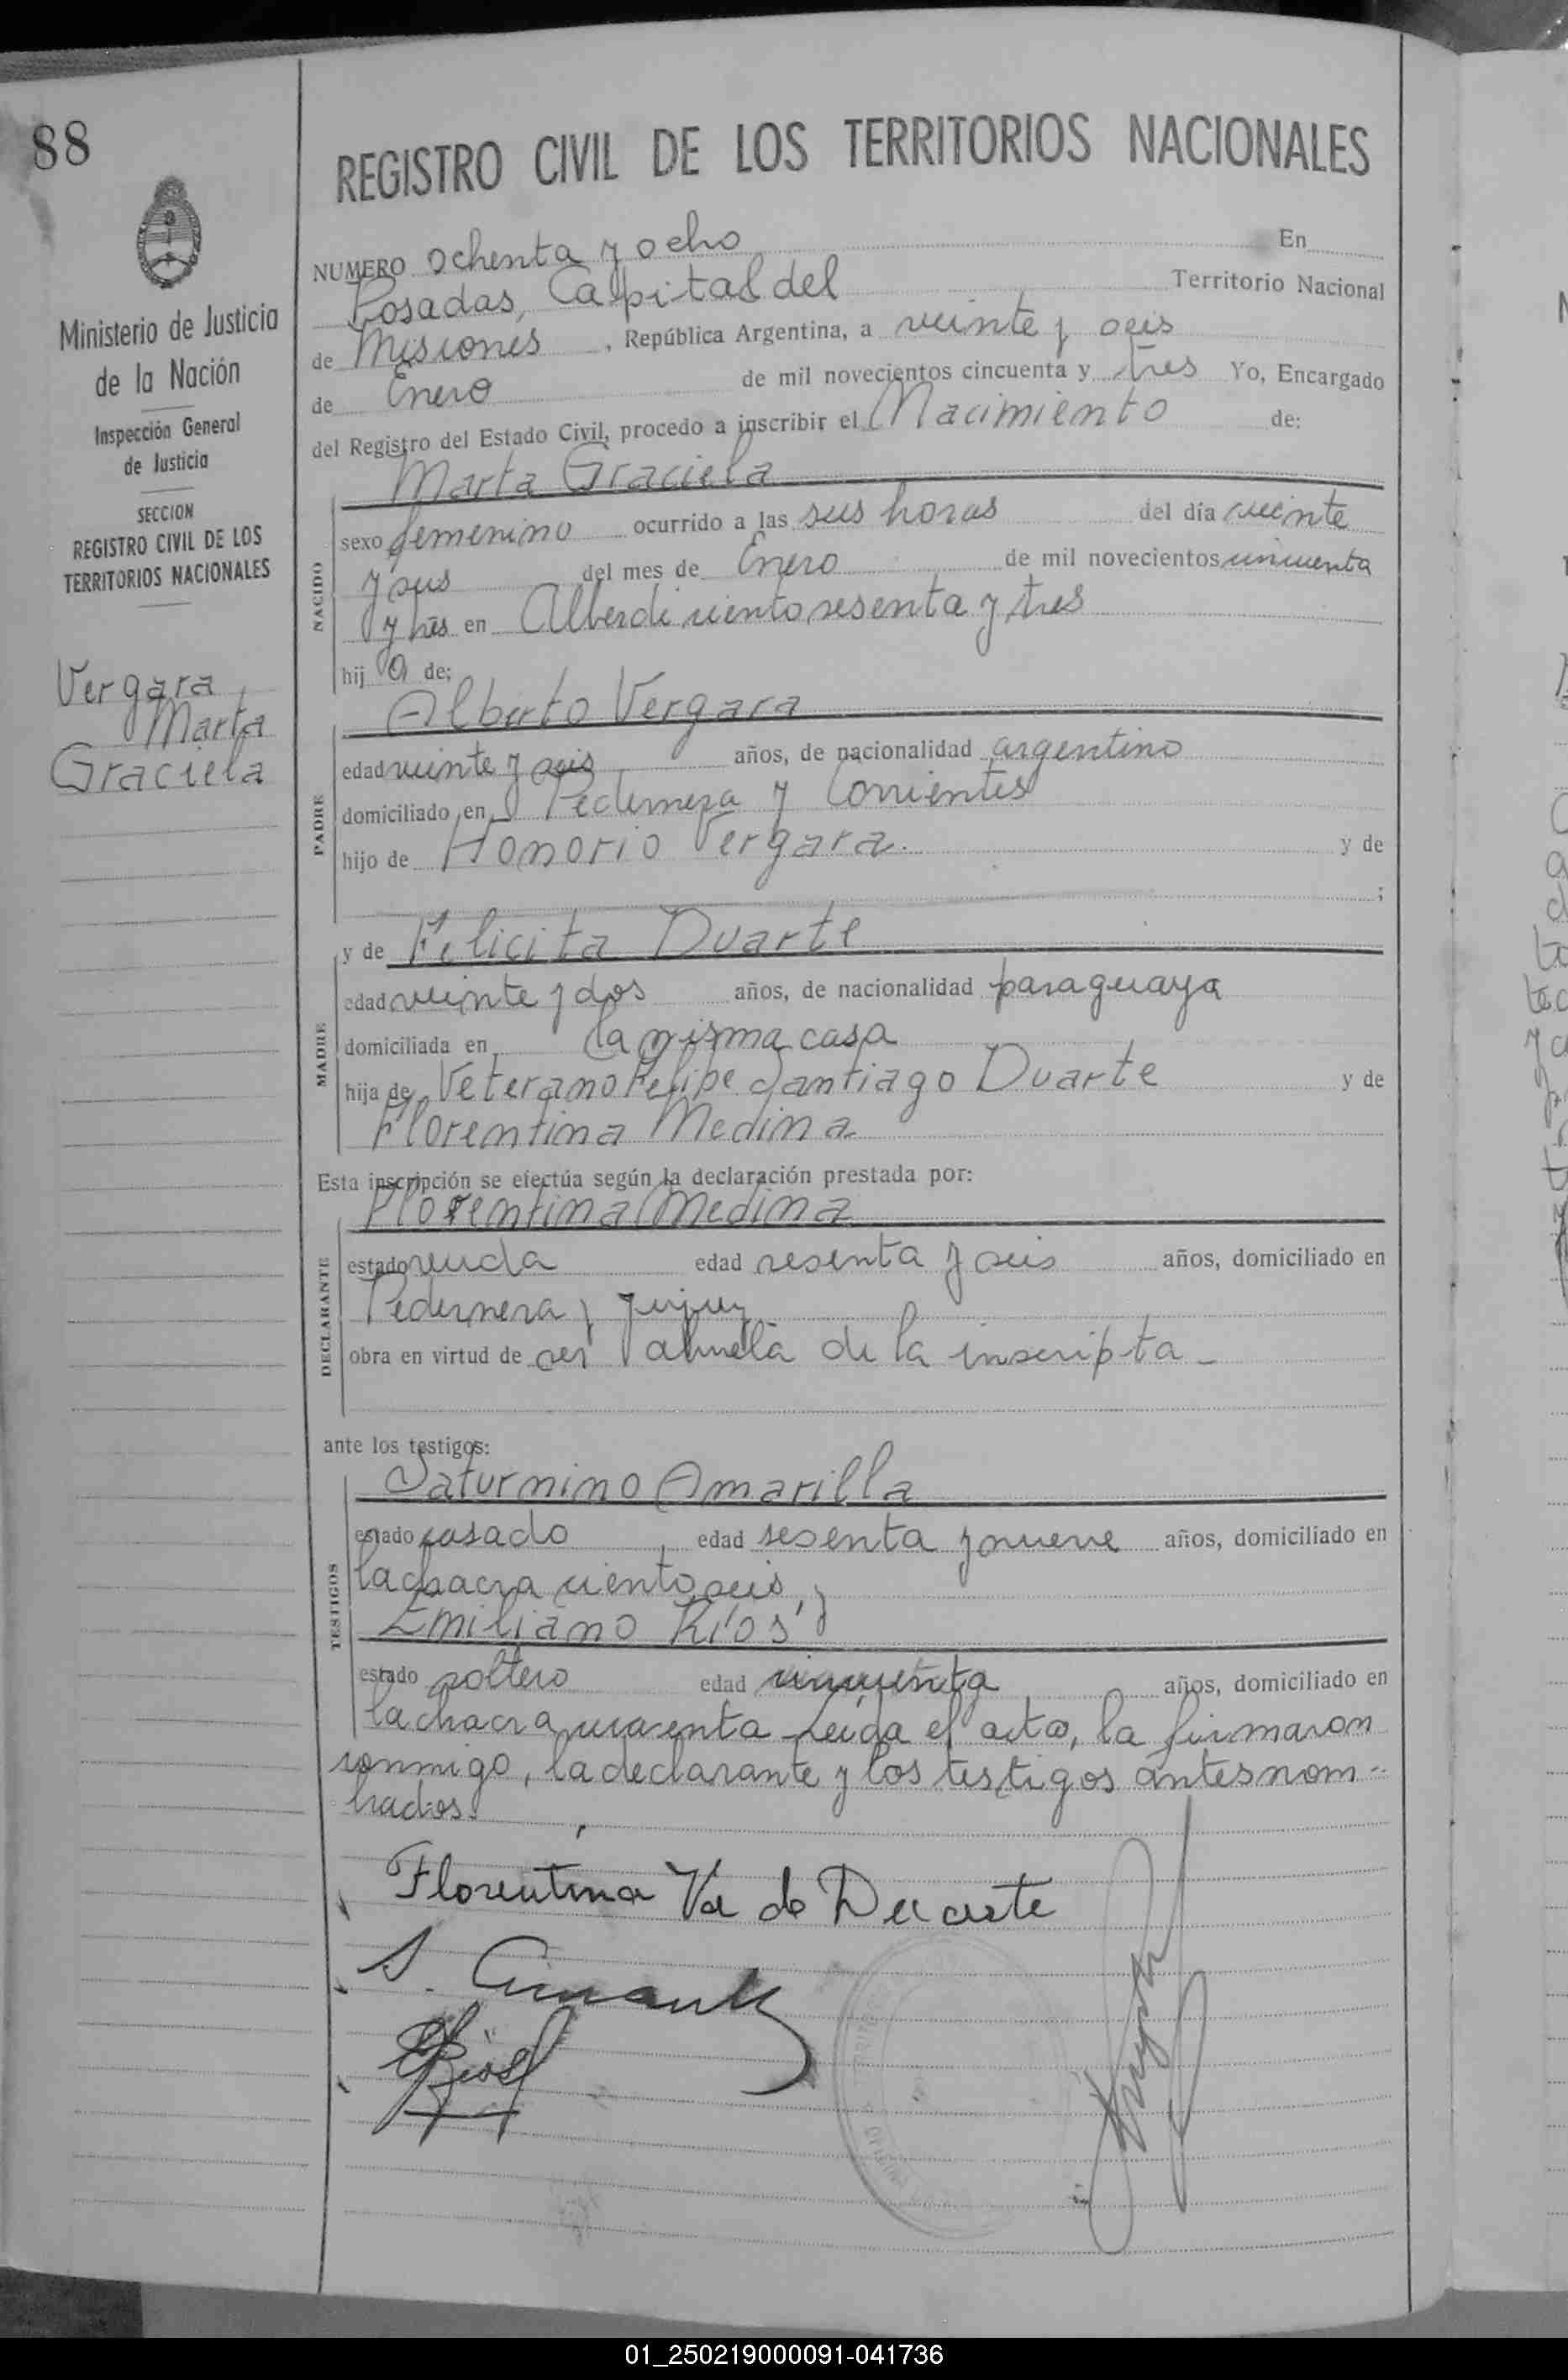 88
Ministerio de Justicia
de la Nación
Inspección General
de Justicia
SECCION
REGISTRO CIVIL DE LOS
TERRITORIOS NACIONALES
Vergara
Marta
Graciela
REGISTRO CIVIL DE LOS TERRITORIOS NACIONALES
NUMERO ochenta y ocho En
Posadas, Capital del Territorio Nacional
de Misiones, República Argentina, a veinte y seis
de Enero de mil novecientos cincuenta y tres Yo, Encargado
del Registro del Estado Civil, procedo a inscribir el Nacimiento de:
Marta Graciela
NACIDO
sexo femenino ocurrido a las seis horas del día veinte
y seis del mes de Enero de mil novecientos cincuenta
y tres en Alberdi ciento sesenta y tres
hij a de;
Alberto Vergara
PADRE
edad veinte y seis años, de nacionalidad argentino
domiciliado en Pedernera y Corrientes
hijo de Honorio Vergara. y de
;
y de Felicita Duarte
MADRE
edad veinte y dos años, de nacionalidad paraguaya
domiciliada en la misma casa
hija de Veterano Felipe Santiago Duarte y de
Florentina Medina
Esta inscripción se efectúa según la declaración prestada por:
Florentina Medina
DECLARANTE
estado viuda edad sesenta y seis años, domiciliado en
Pedernera y Jujuy
obra en virtud de ser abuela de la inscripta -
ante los testigos:
Saturnino Amarilla
TESTIGOS
estado casado edad sesenta y nueve años, domiciliado en
la chacra ciento seis, y
Emiliano Ríos
estado soltero edad cincuenta años, domiciliado en
la chacra cuarenta - Leída el acta, la firmaron
conmigo, la declarante y los testigos antes nom-
brados.
Florentina Va de Duarte
S. Amarilla
E Rios
01_250219000091-041736